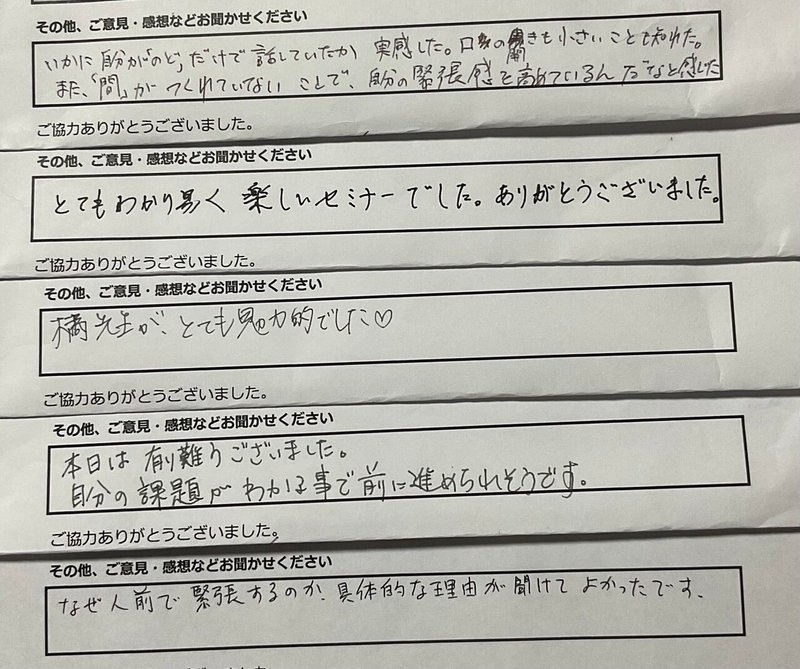 その他、ご意見・感想などお聞かせください
いかに自分が「のど」だけで話していたか 実感した。口の開きも小さいことも知れた。
また、「間」がつくれていないことで、自分の緊張感を高めているんだなと感じた
ご協力ありがとうございました。
その他、ご意見・感想などお聞かせください
とてもわかり易く 楽しいセミナーでした。ありがとうございました。
ご協力ありがとうございました。
その他、ご意見・感想などお聞かせください
橘先生が、とても魅力的でした♡
ご協力ありがとうございました。
その他、ご意見・感想などお聞かせください
本日は有難うございました。
自分の課題がわかる事で前に進められそうです。
ご協力ありがとうございました。
その他、ご意見・感想などお聞かせください
なぜ人前で緊張するのか、具体的な理由が聞けてよかったです、